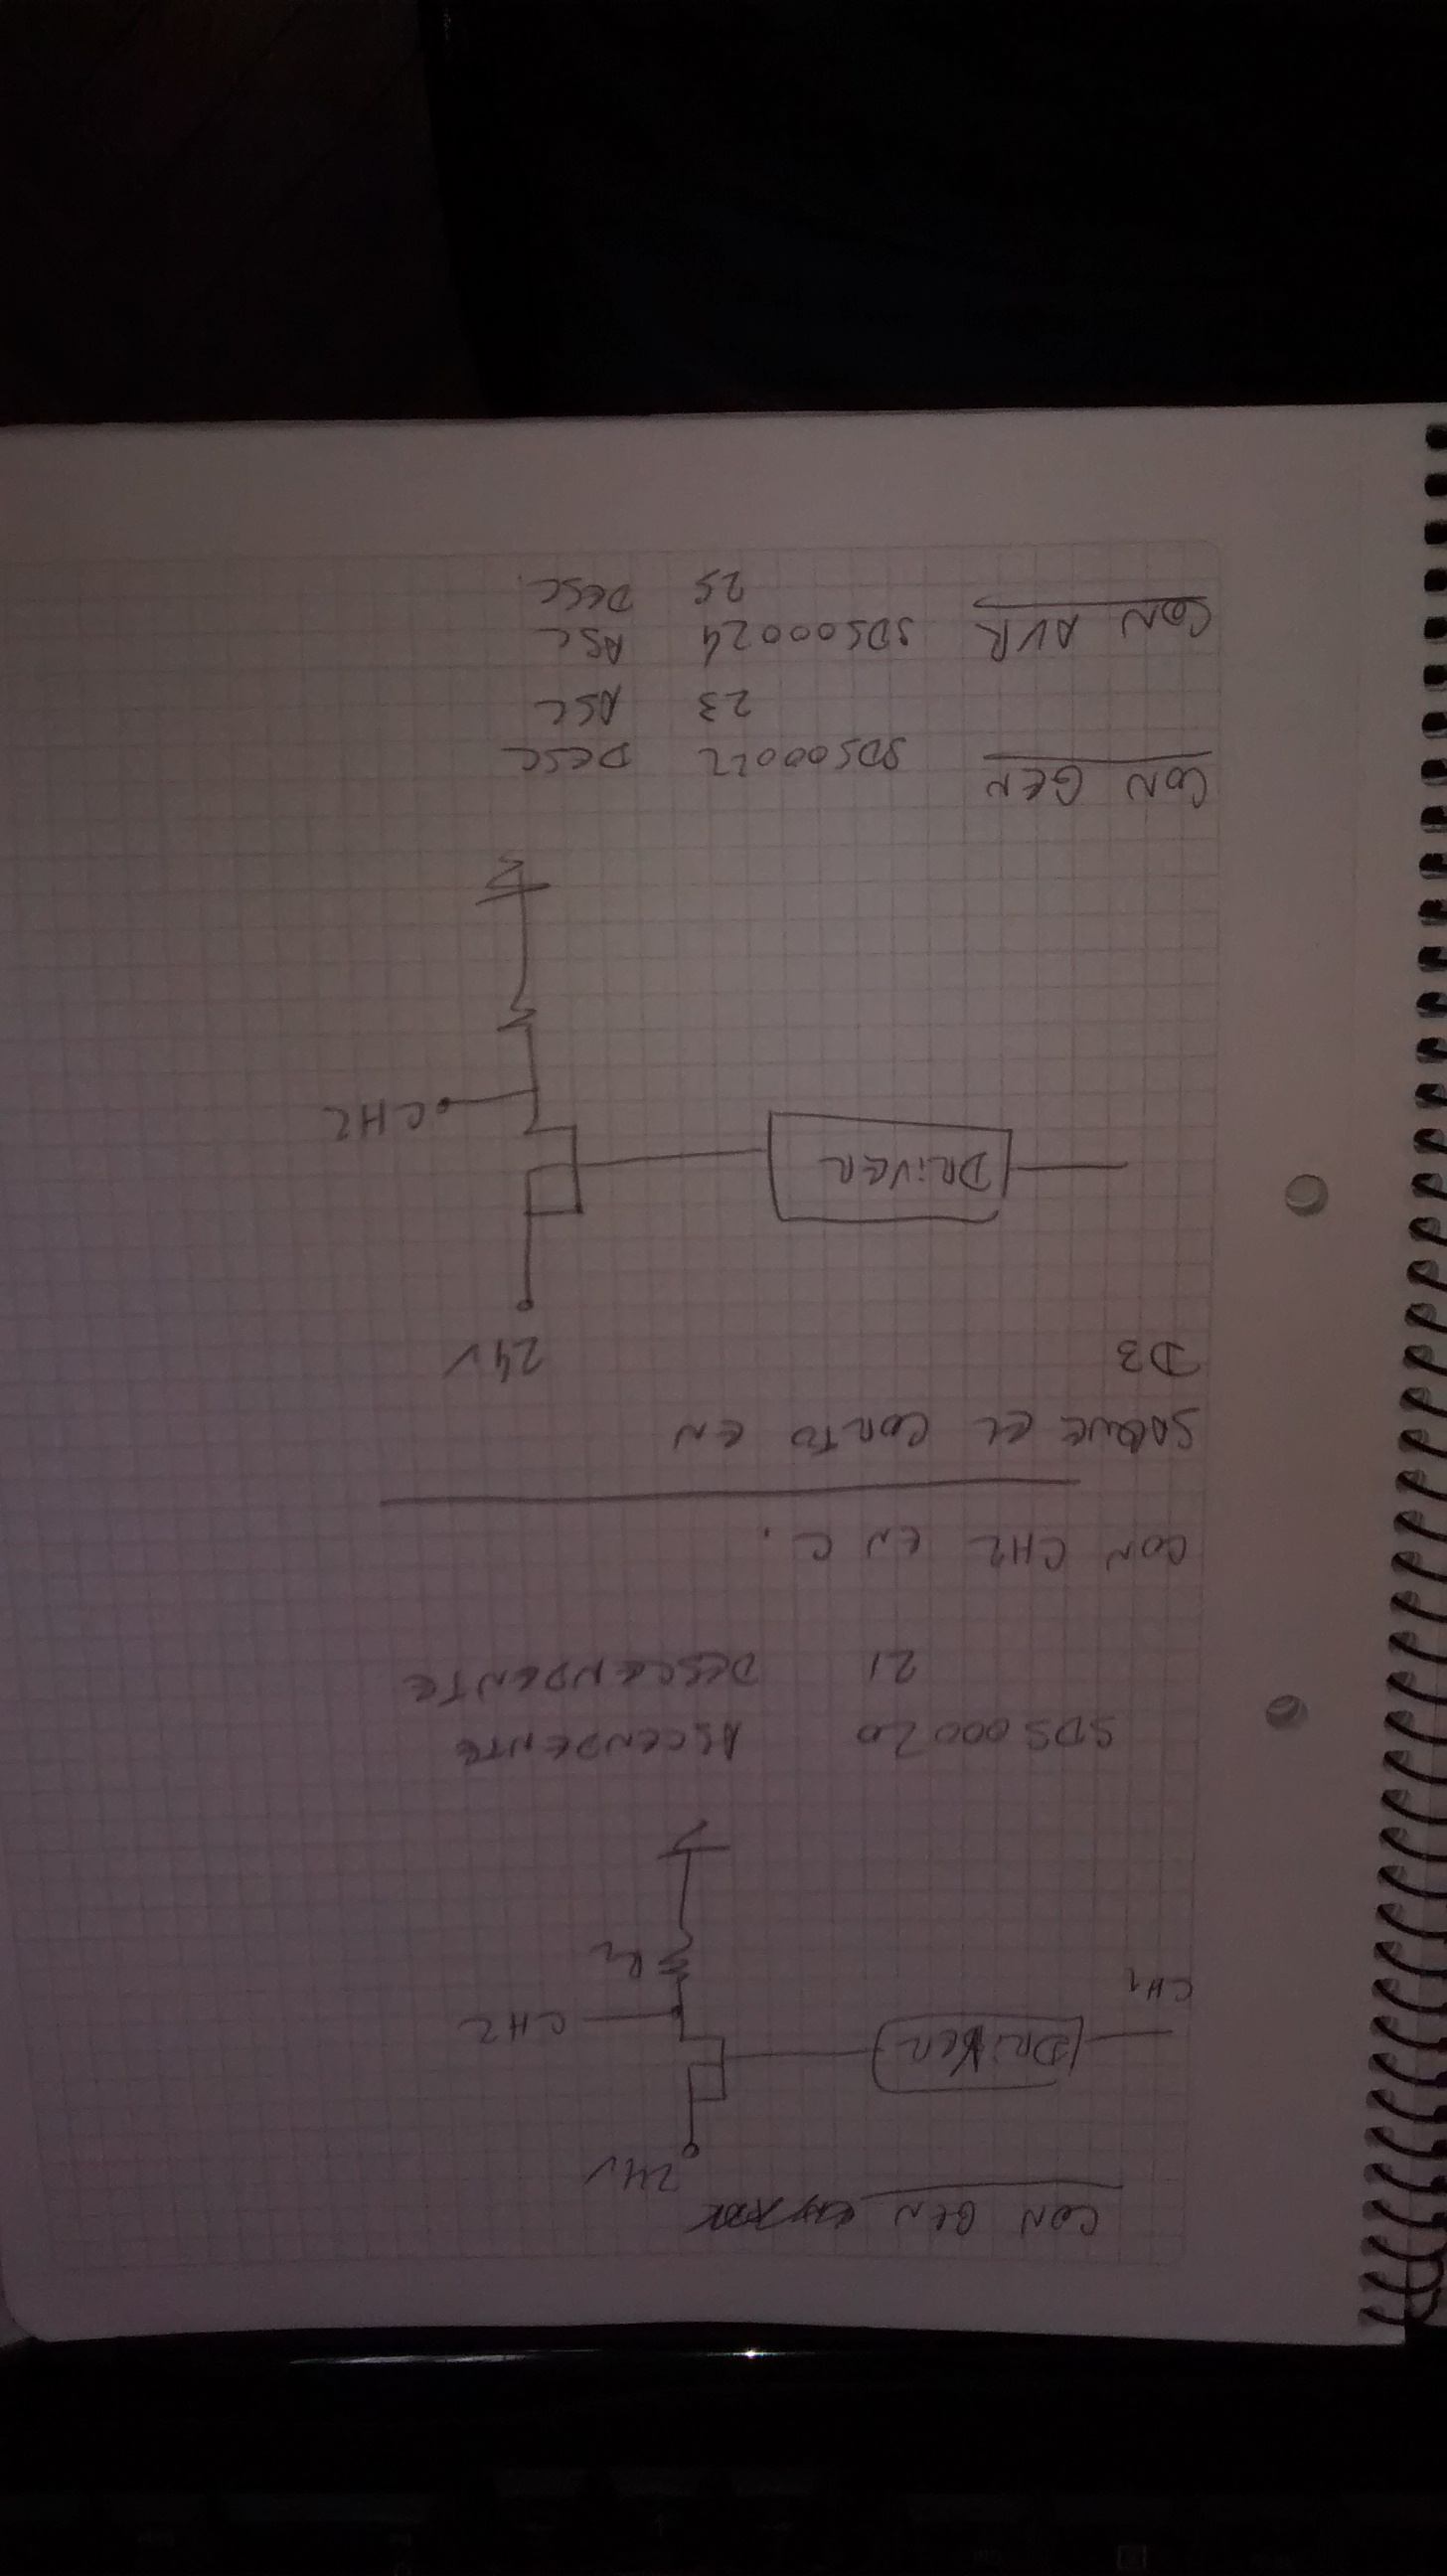 CON GEN
24V
DRIVER
CH2
CH1
RL
SDS00020 ASCENDENTE
21 DESCENDENTE
CON CH2 EN C.
SAQUE EL CORTO EN
D3
24V
DRIVER
CH2
CON GEN
SDS00022 DESC
23 ASC
CON AVR
SDS00024 ASC
25 DESC.